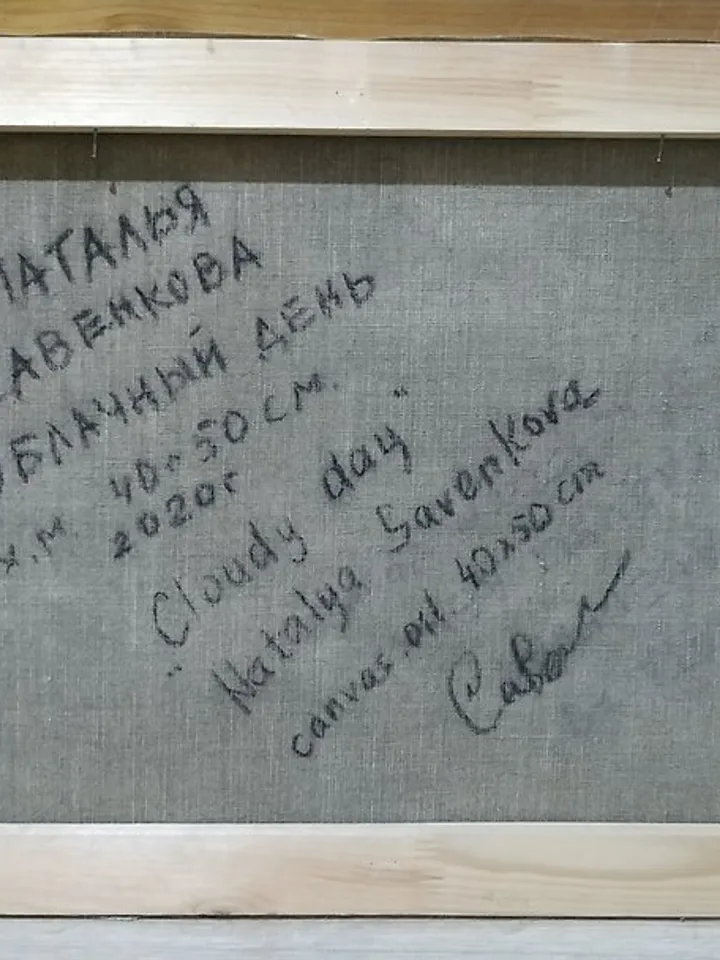 НАТАЛЬЯ
САВЕНКОВА
ОБЛАЧНЫЙ ДЕНЬ
х.м. 40×50 см.
2020г
"Cloudy day"
Natalya Savenkova
canvas. oil. 40x50 cm